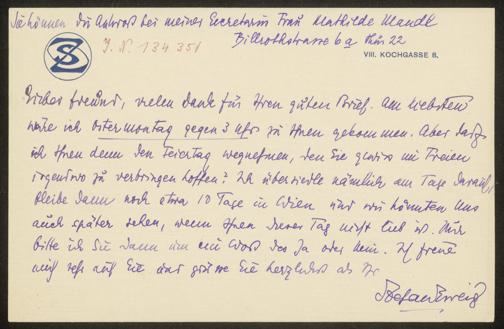 Sie können die Antwort bei meiner Secretärin Frau Mathilde Mandl
Billrothstrasse 6a Thür 22
SZ
I. N. 134 351
VIII. KOCHGASSE 8.
Lieber Freund, vielen Dank für Ihren guten Brief. Am liebsten
wäre ich Ostermontag gegen 3 Uhr zu Ihnen gekommen. Aber darf
ich Ihnen denn den Feiertag wegnehmen, den Sie gewiss im Freien
irgendwo zu verbringen hoffen? Ich übersiedle nämlich am Tage darauf,
bleibe dann noch etwa 10 Tage in Wien und wir könnten uns
auch später sehen, wenn Ihnen dieser Tag nicht lieb ist. Nur
bitte ich Sie dann um ein Wort des Ja oder Nein. Ich freue
mich sehr auf Sie und grüsse Sie herzlichst als Ihr
Stefan Zweig